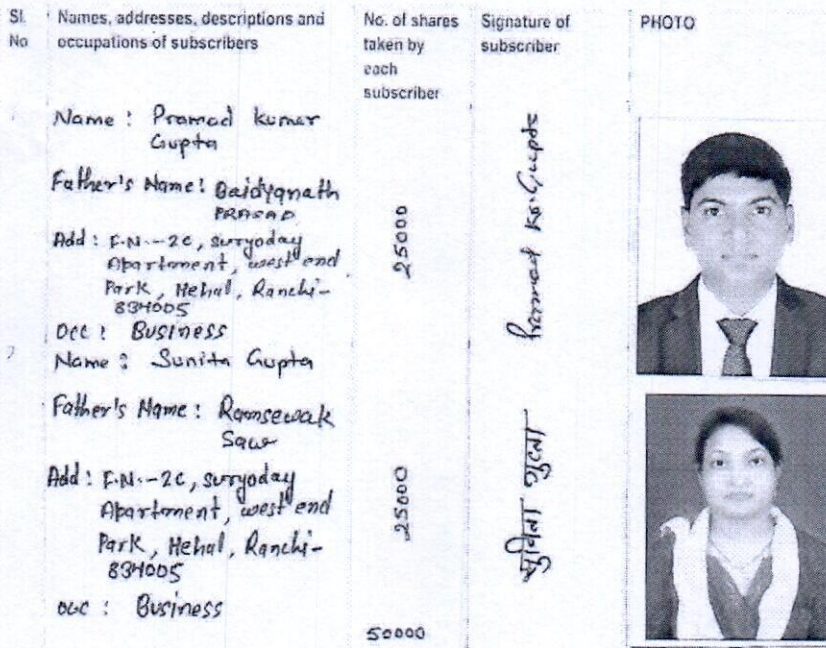 Sl. No
Names, addresses, descriptions and occupations of subscribers
No. of shares taken by each subscriber
Signature of subscriber
PHOTO
Name : Pramod kumar
Gupta
Father's Name : Baidyanath
PRASAD
Add : F.N.-2C, suryoday
Apartment, west end
Park, Hehal, Ranchi-
834005
Occ : Business
25000
Pramod Kr. Gupta
2
Name : Sunita Gupta
Father's Name : Ramsewak
Saw
Add : F.N.-2C, suryoday
Apartment, west end
Park, Hehal, Ranchi-
834005
Occ : Business
25000
सुनिता गुप्ता
50000